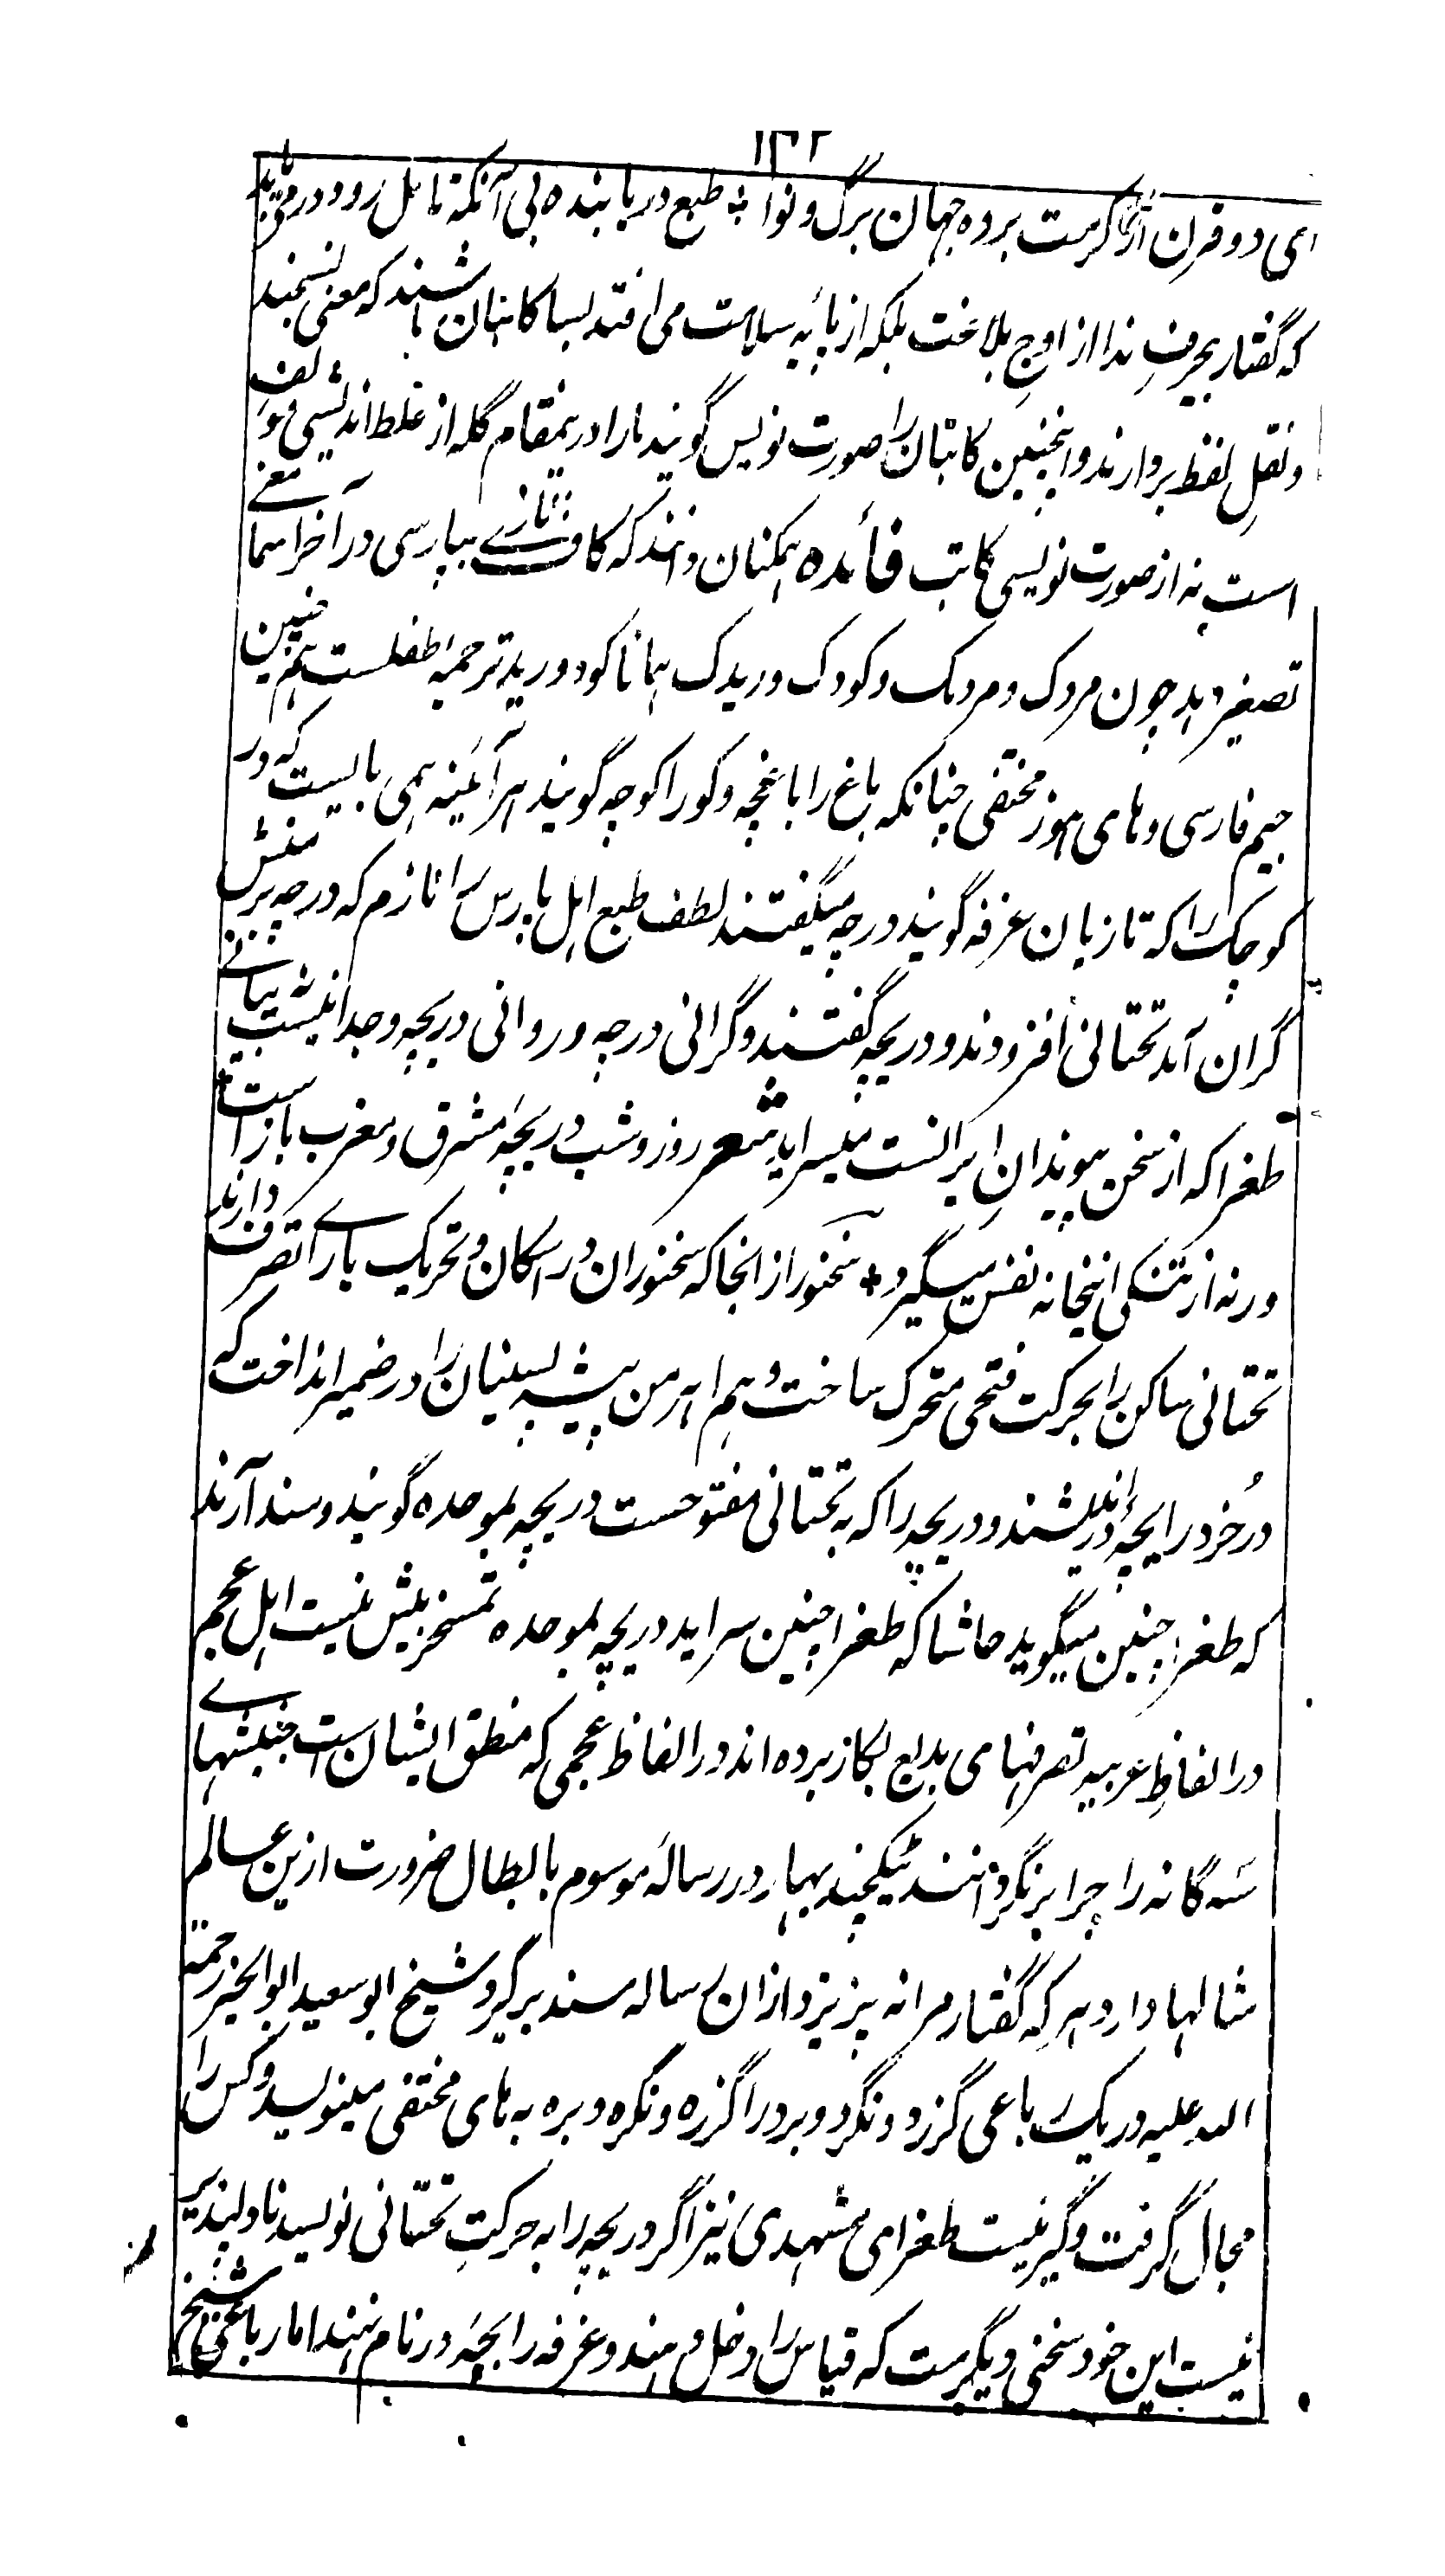 ۱۳۲
ای دو فرن از کرمت برده جهان برگ و نوا * طبع دریابنده بی آنکه تامل رود درمی یابد
که گفتار بحرفِ ندا از اوجِ بلاغت بلکه از پایهٔ سلامت می افتد بسا کاتبان باشند که معنی نسنجند
و نقلِ لفظ بردارند و اینچنین کاتبان را صورت نویس گویند ما را درینمقام گله از غلط اندیشی مؤلف
است نه از صورت نویسی کاتب فائده همگنان دانند که کاف تازے بپارسی در آخر اسما معنے
تصغیر دهد چون مردک و مردمک و کودک و ریدک همانا کود و رید ترجمهٔ طفلست هم چنین
جیم فارسی و های هوز مختفی چنانکه باغ را باغچه و کو را کوچه گویند هر آئینه همی بایست که در
کوچک را که تازیان غرفه گویند درچه میگفتند لطف طبع اهل پارس را نازم که درچه بر منش
گران آمد تحتانی افزودند و دریچه گفتند و گرانی درچه و روانی دریچه وجدانیست نه بیانے
طغرا که از سخن پیوندانِ ایرانست میسراید شعر روز و شب دریچهٔ مشرق و مغرب باز است
ورنه از تنگی اینخانه نفس میگیرد * سخنور از انجا که سخنوران در اسکان و تحریک یارے تصرف دارند
تحتانی ساکن را بحرکت فتحی متحرک ساخت وهم اهرمن پیشه پسینیان را در ضمیر انداخت که
درِ خُرد را بچهٔ در اندیشند و دریچه را که به تحتانی مفتوحست دربچه بموحده گویند و سند آرند
که طغرا چنین میگوید حاشا که طغرا چنین سراید دربچه بموحده تمسخر بیش نیست اهل عجم
در الفاظِ عربیه تصرفهای بدیع بکار برده اند در الفاظ عجمی که منطق ایشان است جنبشهاے
سه گانه را چرا برنگردانند ٹیکچند بهار در رسالهٔ موسوم بابطال ضرورت ازین عالم
مثالها دارد هر که گفتار مرا نه پذیرد ازان رساله سند برگیرد شیخ ابو سعید ابو الخیر رحمة
الله علیه در یک رباعی گزرد و نگرد و برد را گزره و نگره و بره به های مختفی مینویسد و کس را
مجال گرفت و گیر نیست طغرای مشهدی نیز اگر دریچه را به حرکتِ تحتانی نویسد نادلپذیر
نیست این خود سخنی دیگرست که قیاس را دخل دهند و غرفه را بچهٔ در نام نهند اما رباعی شیخ